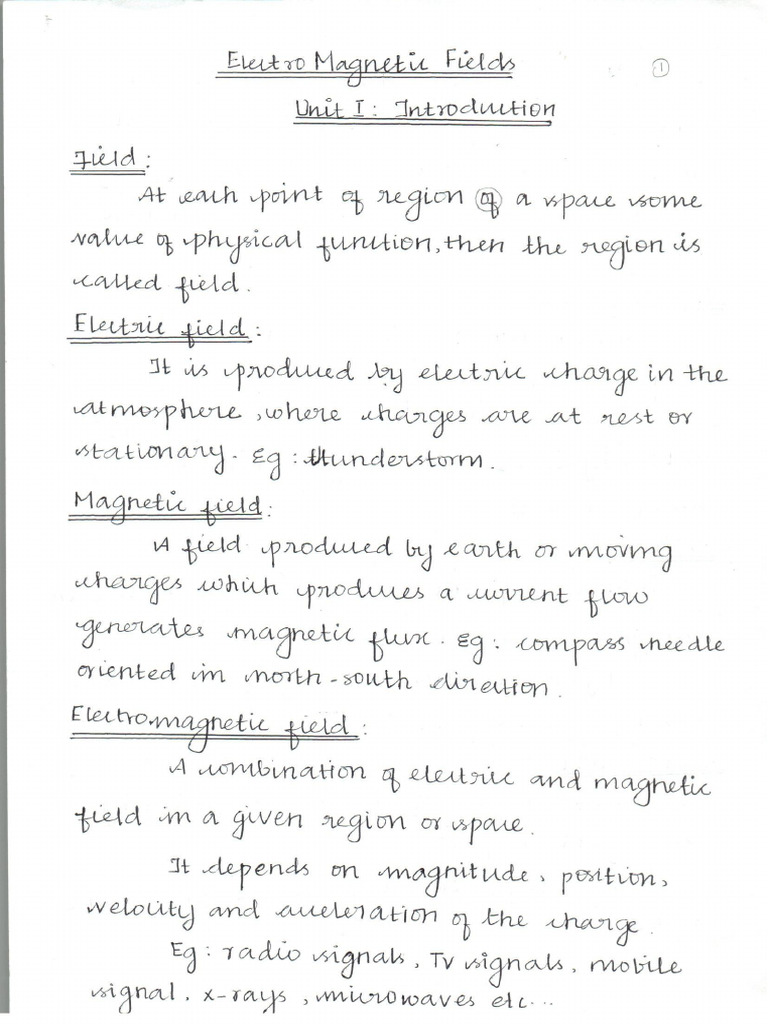 Electro Magnetic Fields
1
Unit I : Introduction
Field :
At each point of region of a space some
value of physical function, then the region is
called field.
Electric field :
It is produced by electric charge in the
atmosphere, where charges are at rest or
stationary. Eg : thunderstorm.
Magnetic field :
A field produced by earth or moving
charges which produces a current flow
generates magnetic flux. Eg : compass needle
oriented in north-south direction.
Electromagnetic field :
A combination of electric and magnetic
field in a given region or space.
It depends on magnitude, position,
velocity and acceleration of the charge.
Eg : radio signals, TV signals, mobile
signal, x-rays, microwaves etc...